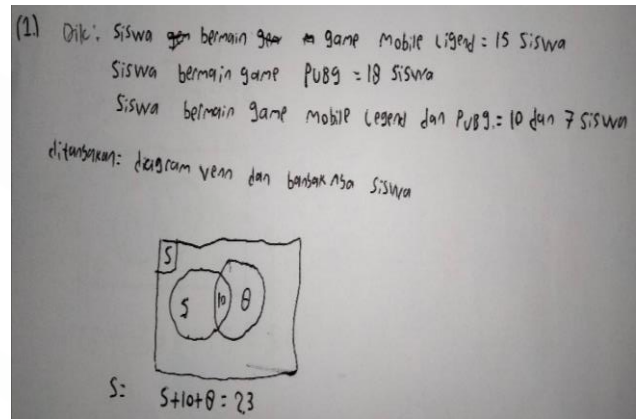 (1.) Dik: Siswa bermain game Mobile Ligend = 15 Siswa
Siswa bermain game PUBg = 18 Siswa
Siswa bermain game Mobile Legend dan PUBg. = 10 dan 7 Siswa
ditanyakan: diagram venn dan banyak nya Siswa
S
5 10 8
S= 5+10+8 = 23